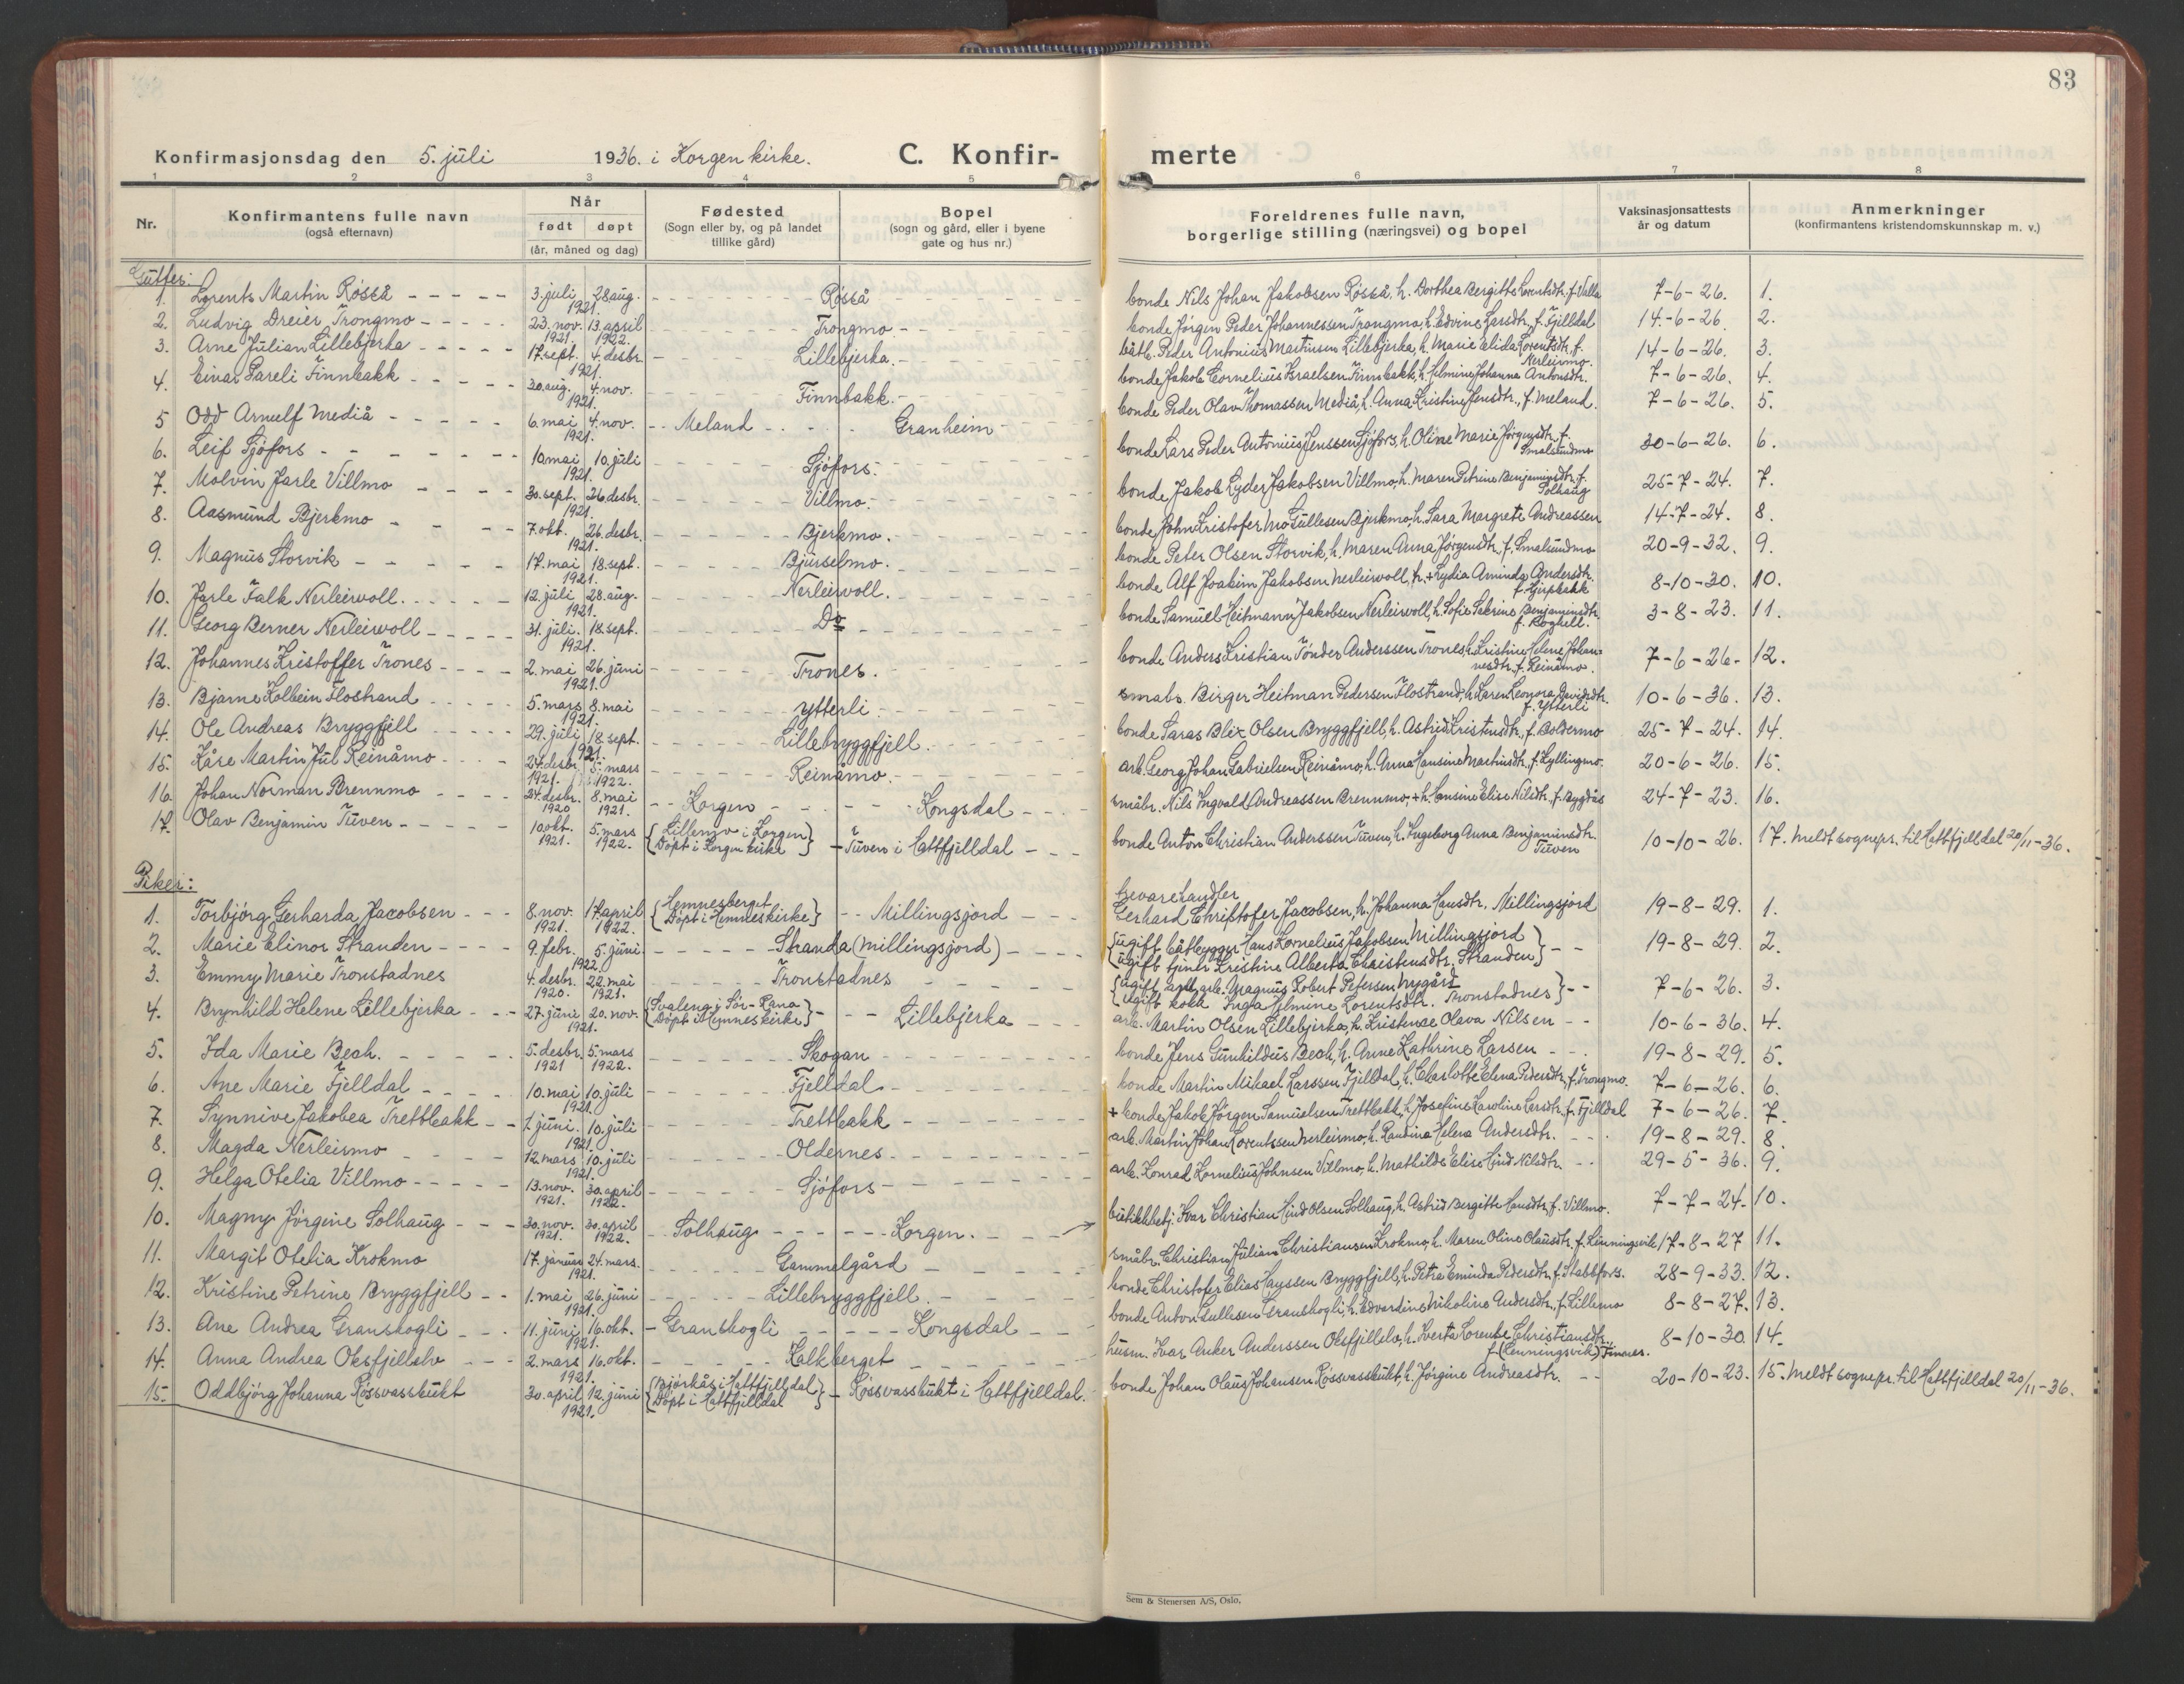 83
Konfirmasjonsdag den 5. juli 1936. i Korgen kirke. C. Konfir- merte
1 2 3 4 5 6 7 8
Nr. Konfirmantens fulle navn (også efternavn) Når født døpt (år, måned og dag) Fødested (Sogn eller by, og på landet tillike gård) Bopel (sogn og gård, eller i byene gate og hus nr.) Foreldrenes fulle navn, borgerlige stilling (næringsvei) og bopel Vaksinasjonsattests år og datum Anmerkninger (konfirmantens kristendomskunnskap m. v.)
Gutter:
1. Lorents Martin Røsså 3. juli 1921. 28 aug. Røsså bonde Nils Johan Jakobsen Røsså, h. Dorthea Bergitte Lorentsdtr. f. Villa 7-6-26. 1.
2. Ludvig Dreier Trongmo 23. nov. 1921. 13. april 1922. Trongmo bonde Jørgen Peder Johannessen Trongmo, h. Edvine Larsdtr., f. Fjelldal 14-6-26. 2.
3. Arne Julian Lillebjerka 17. sept. 4. desbr. 1921. Lillebjerka. båtb. Peder Antonius Martinsen Lillebjerka, h. Marie Elida Lorentsdtr., f. Nerleirmo 14-6-26. 3.
4. Einar Sareli Finnbakk 20. aug. 4. nov. 1921. Finnbakk. bonde Jakob Cornelius Israelsen Finnbakk, h. Helmine Johanna Antonsdtr. 7-6-26. 4.
5 Odd Arnulf Mediå 6. mai 4. nov. 1921. Meland Granheim bonde Peder Olav Thomassen Mediå, h. Anna Kristine Jensdtr., f. Meland. 7-6-26. 5.
6. Leif Sjøfors 10. mai 10. juli 1921. Sjøfors. bonde Lars Peder Antonius Jenssen Sjøfors, h. Oline Marie Jørgensdtr. f. Smalsundmo 30-6-26. 6.
7. Molvin Jarle Villmo 30. sept. 26. desbr. 1921. Villmo. bonde Jakob Lyder Jakobsen Villmo, h. Maren Petrine Benjaminsdtr. f. Solhaug 25-7-24. 7.
8. Aasmund Bjerkmo 7. okt. 26. desbr. 1921. Bjerkmo. bonde John Kristofer Mo Gullesen Bjerkmo, h. Sara Margrete Andreassen 14-7-24. 8.
9. Magnus Storvik 17. mai 18. sept. 1921. Bjurselmo. bonde Peter Olsen Storvik, h. Maren Anna Jørgensdtr., f. Smalsundmo 20-9-32. 9.
10. Jarle Falk Nerleirvoll. 12. juli 28. aug. 1921. Nerleirvoll. bonde Alf Joakim Jakobsen Nerleirvoll, h. + Lydia Aminda Andersdtr. f. Hjerpbakk 8-10-30. 10.
11. Georg Berner Nerleirvoll 31. juli. 18. sept. 1921. Do bonde Samuel Heitmann Jakobsen Nerleirvoll, h. Sofie Sabrine Benjaminsdtr. f. 3-8-23. 11.
12. Johannes Kristoffer Trones 2. mai 26. juni 1921. Trones. bonde Anders Kristian Tønder Anderssen Trones, h. Kristine Helene Johannesdtr. f. Reinåmo. 7-6-26. 12.
13. Bjarne Kolbein Flostrand 5. mars 8. mai 1921. Ytterli. småbr. Birger Heitman Pedersen Flostrand, h. Karen Leonora Davidsdtr. f. Ytterli 10-6-36. 13.
14. Ole Andreas Bryggfjell 29. juli 18. sept. 1921. Lillebryggfjell. bonde Saras Blix Olsen Bryggfjell, h. Astrid Kristensdtr., f. Boldermo 25-7-24. 14.
15. Kåre Martin Jul Reinåmo 24. desbr. 1921. 5. mars 1922. Reinåmo. arb. Georg Johan Gabrielsen Reinåmo, h. Anna Hansine Martinsdtr., f. Kyllingmo. 20-6-26. 15.
16. Johan Norman Brennmo 24. desbr. 1920 8. mai 1921. Korgen Kongsdal småbr. Nils Ingvald Andreassen Brennmo, + h. Hansine Elise Nilsdtr., f. Bygdås 24-7-23. 16.
17. Olav Benjamin Tuven 10. okt. 1921. 5. mars 1922. {Lillemo i Korgen Døpt i Korgen kirke} Tuven i Hattfjelldal bonde Anton Christian Anderssen Tuven, h. Ingeborg Anna Benjaminsdtr. Tuven 10-10-26. 17. Meldt sognepr. til Hattfjelldal 20/11-36.
Piker:
1. Torbjørg Gerharda Jacobsen 8. nov. 1921. 17. april 1922. {Hemnesberget Døpt i Hemnes kirke} Millingsjord Gevarehandler Gerhard Christofer Jacobsen, h. Johanna Hansdtr. Millingsjord 19-8-29. 1.
2. Marie Elinor Stranden 9. febr. 5. juni 1922. Stranda (Millingsjord) {ugift båtbygger Hans Kornelius Jakobsen Millingsjord ugift tjener Kristine Alberta Christensdtr. Stranden} 19-8-29. 2.
3. Emmy Marie Tronstadnes 4. desbr. 1920. 22. mai 1921. Tronstadnes {ugift anl. arb. Magnus Robert Petersen Nygård ugift kokk Inga Helmine Lorentsdtr. Tronstadnes} 7-6-26. 3.
4. Brynhild Helene Lillebjerka 27. juni 20. nov. 1921. {Svaleng i Sør-Rana Døpt i Hemnes kirke} Lillebjerka arb. Martin Olsen Lillebjerka, h. Kristense Olava Nilsen 10-6-36. 4.
5. Ida Marie Bech. 5. desbr. 1921 5. mars 1922. Skogan bonde Jens Gunhildius Bech, h. Anne Kathrine Larsen 19-8-29. 5.
6. Ane Marie Fjelldal 10. mai 10. juli 1921. Fjelldal bonde Martin Mikael Larssen Fjelldal, h. Charlotte Elena Pedersdtr., f. Trongmo. 7-6-26. 6.
7. Synnive Jakobea Trettbakk 1. juni. 10. juli 1921. Trettbakk + bonde Jakob Jørgen Samuelsen Trettbakk, h. Josefine Karoline Larsdtr., f. Fjelldal 7-6-26. 7.
8. Magda Nerleirmo 12. mars 10. juli 1921. Oldernes arb. Martin Johan Lorentssen Nerleirmo, h. Raudina Helena Andersdtr. 19-8-29. 8.
9. Helga Otelia Villmo 13. nov. 1921. 30. april 1922. Sjøfors arb. Konrad Kornelius Johnsen Villmo, h. Mathilde Elise Hjind Nilsdtr. 29-5-36. 9.
10. Magny Jørgine Solhaug 30. nov. 1921. 30. april 1922. Solhaug Korgen. butikkbetj. Ivar Christian Hind Olsen Solhaug, h. Astrid Bergitte Hansdtr., f. Villmo. 7-7-24. 10.
11. Margit Otelia Krokmo 17. januar 24. mars. 1921. Gammelgård småbr. Christian Julian Christiansen Krokmo, h. Maren Oline Olausdtr., f. Lenningsvik 17-8-27 11.
12. Kristine Petrine Bryggfjell 1. mai 26. juni 1921. Lillebryggfjell. bonde Christofer Elias Hayssen Bryggfjell, h. Petra Eminda Pedersdtr., f. Stabbfors. 28-9-33. 12.
13. Ane Andrea Granskogli 11. juni 16. okt. 1921. Granskogli Kongsdal bonde Anton Gullesen Granskogli, h. Edvardine Nikoline Andersdtr., f. Lillemo 8-8-27. 13.
14. Anna Andrea Oksfjellelv 2. mars 16. okt. 1921. Kalkberget husm. Ivar Anker Anderssen Oksfjellelv, h. Herta Lorense Christiansdtr., f. (Lenningsvik) Finnes. 8-10-30. 14.
15. Oddbjørg Johanna Røssvassbukt 30. april 12. juni 1921. {Bjørkås i Hattfjelldal Døpt i Hattfjelldal} Røssvassbukt i Hattfjelldal. bonde Johan Olaus Johansen Røssvassbukt, h. Jørgine Andreasdtr. 20-10-23. 15. Meldt sognepr. til Hattfjelldal 20/11-36.
Sem & Stenersen A/S, Oslo.